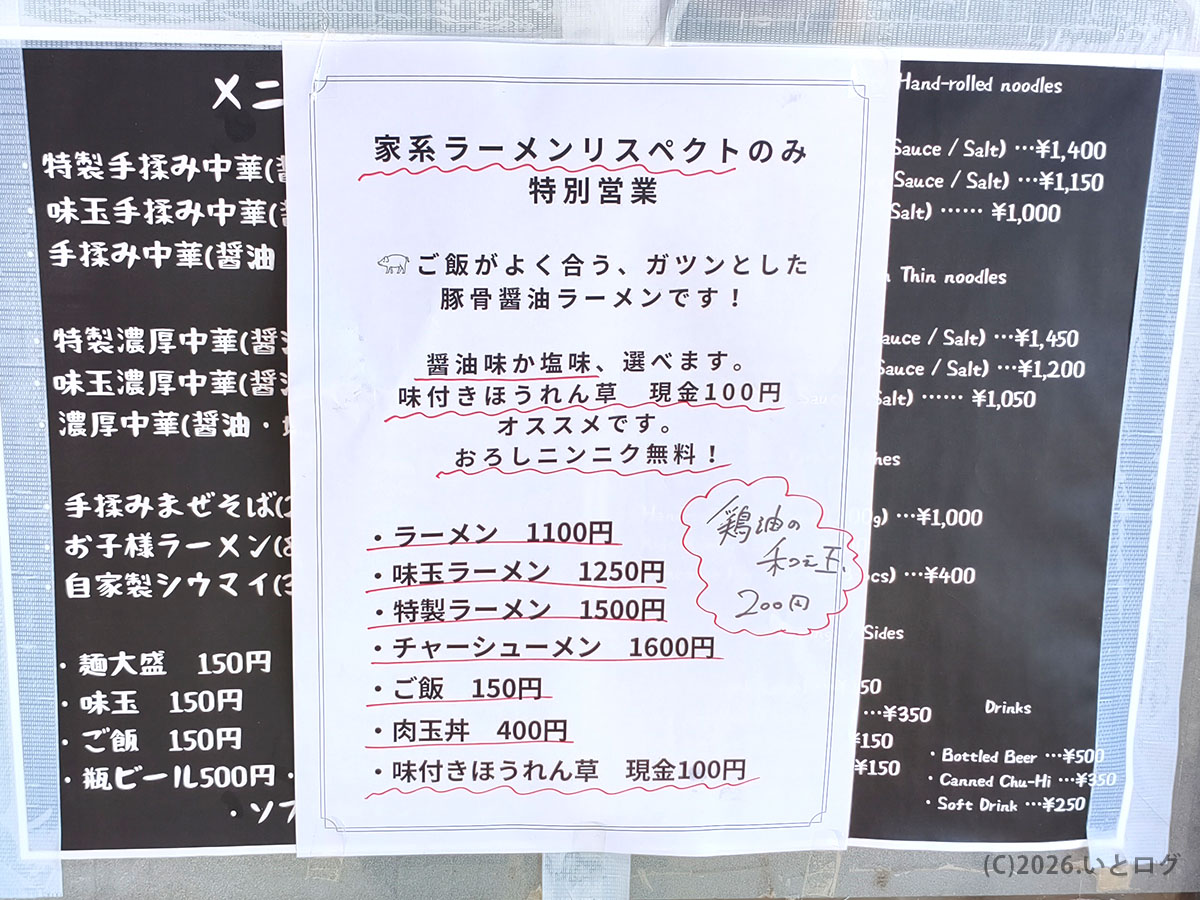 メニ
特製手揉み中華(醤
味玉手揉み中華(醤
手揉み中華(醤油
特製濃厚中華(醤油
味玉濃厚中華(醤
濃厚中華(醤油・塩
手揉みまぜそば(
お子様ラーメン(
自家製シウマイ(3
・麺大盛 150円
・味玉 150円
・ご飯 150円
・瓶ビール500円・
・ソフ
家系ラーメンリスペクトのみ
特別営業
ご飯がよく合う、ガツンとした
豚骨醤油ラーメンです！
醤油味か塩味、選べます。
味付きほうれん草 現金100円
オススメです。
おろしニンニク無料！
・ラーメン 1100円
・味玉ラーメン 1250円
・特製ラーメン 1500円
・チャーシューメン 1600円
・ご飯 150円
・肉玉丼 400円
・味付きほうれん草 現金100円
鶏油の
和え玉、
200円
Hand-rolled noodles
Sauce / Salt) …¥1,400
Sauce / Salt) …¥1,150
Salt) …… ¥1,000
Thin noodles
auce / Salt) …¥1,450
Sauce / Salt) …¥1,200
Salt) …… ¥1,050
hes
0g) …¥1,000
pcs) …¥400
Sides
50
…¥350
¥150
¥150
Drinks
・Bottled Beer …¥500
・Canned Chu-Hi …¥350
・Soft Drink …¥250
(C)2026.いとログ